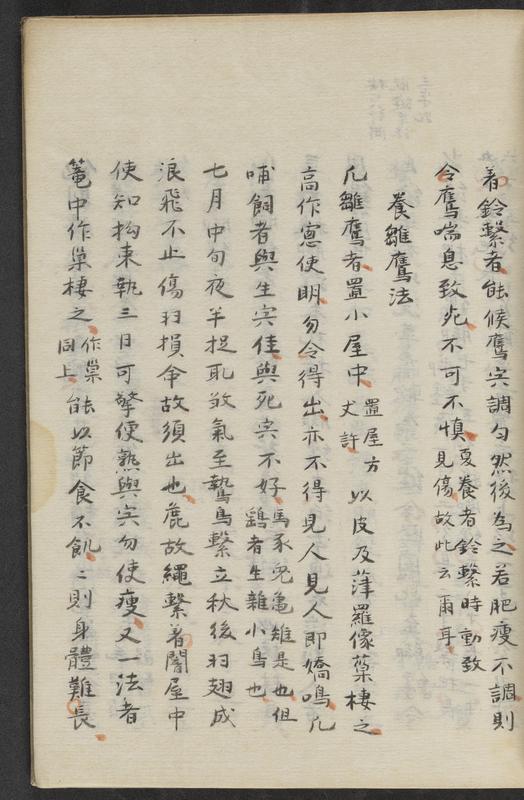 着鈴繫者能候鷹宍調勻然後為之若肥瘦不調則
令鷹喘息致死不可不慎夏養者鈴繫時動致見傷故此云爾耳
養雛鷹法
凡雛鷹者置小屋中置屋方丈許以皮及薄羅像葉棲之
高作窓使明勿令得出亦不得見人見人即嬌鳴凡
哺飼者與生宍佳與死宍不好馬豕兔亀雉是也但鷄者生雜小鳥也
七月中旬夜半捉耴敬氣至鷙鳥繫立秋後羽翅成
浪飛不止傷羽損命故須出也麁故繩繫着闇屋中
使知拘束執三日可擎便熟與宍勿使瘦又一法者
篭中作巢棲之作巢同上能以節食不飢〻則身體難長